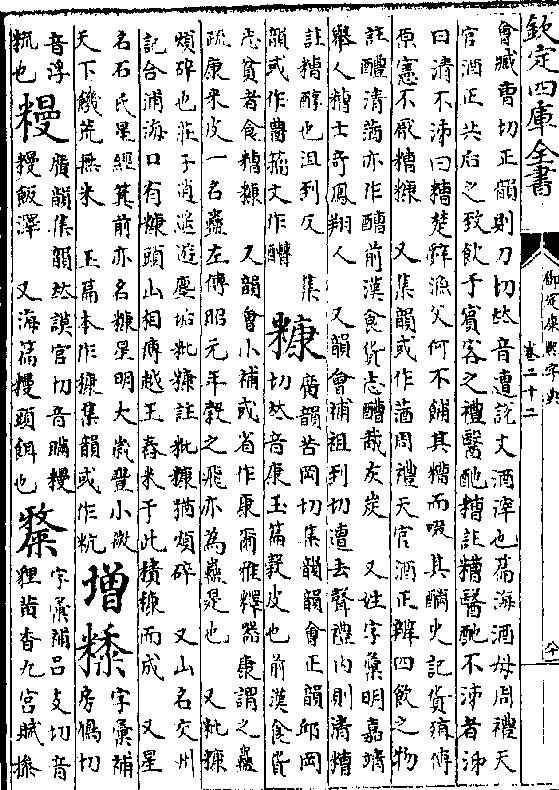 欽定四庫全書
御定康熙字典
卷二十二
會臧曹切正韻則刀切𠀤音遭說文酒滓也篇海酒母周禮天
官酒正共后之致飲于賓客之禮醫酏糟註糟醫酏不沛者沛
曰清不沛曰糟楚辭漁父何不餔其糟而啜其醨史記貨殖傳
原憲不厭糟糠 又集韻或作蕕周禮天官酒正辨四飲之物
註醴清蕕亦作醩前漢食貨志醩酨灰炭 又姓字彙明嘉靖
舉人糟士奇鳳翔人 又韻會補祖到切遭去聲禮內則清糟
註糟醇也沮到反 集韻或作䕢蕕文作醩
糠 廣韻苦岡切集韻韻會正韻邱岡切𠀤音康玉篇穀皮也前漢食貨
志貧者食糟糠 又韻會小補或省作康爾雅釋器康謂之蠱
疏康米皮一名蠱左傳昭元年穀之飛亦為蠱是也 又粃糠
煩碎也莊子逍遙遊塵垢粃糠註粃糠猶煩碎 又山名交州
記合浦海口有糠頭山相傳越王舂米于此積糠而成 又星
名石氏星經箕前亦名糠星明大歲豐小微
天下饑荒無米 玉篇本作穅集韻或作粇 增 𥻪 字彙補房鳩切
音浮
粰也 糢 廣韻集韻𠀤謨官切音瞞糢
糢飯澤 又海篇糢頭餌也 𥻦 字彙補呂支切音
狸黃香九宮賦操